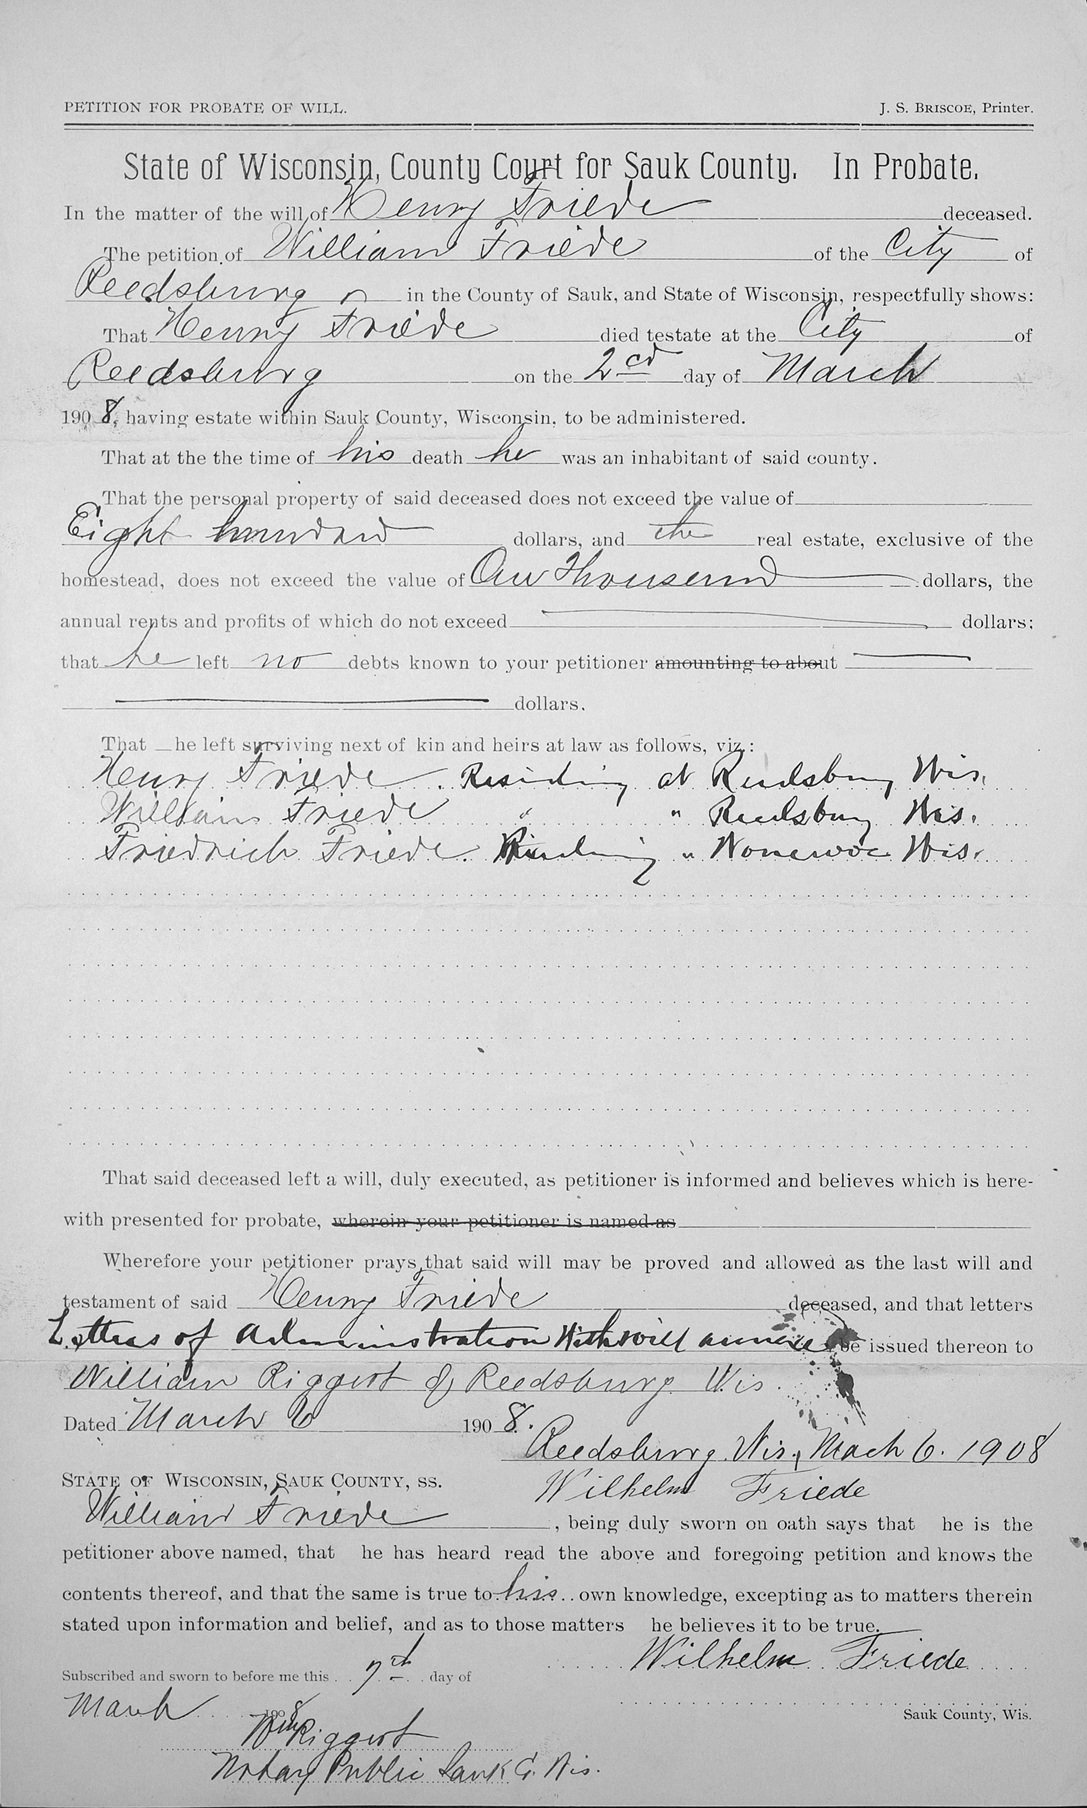 PETITION FOR PROBATE OF WILL. J. S. BRISCOE, Printer.
State of Wisconsin, County Court for Sauk County. In Probate.
In the matter of the will of Henry Friede deceased.
The petition of William Friede of the City of
Reedsburg in the County of Sauk, and State of Wisconsin, respectfully shows:
That Henry Friede died testate at the City of
Reedsburg on the 2cd day of March
1908, having estate within Sauk County, Wisconsin, to be administered.
That at the the time of his death he was an inhabitant of said county.
That the personal property of said deceased does not exceed the value of
Eight dollars, and the real estate, exclusive of the
homestead, does not exceed the value of Thousend dollars, the
annual rents and profits of which do not exceed dollars;
that he left no debts known to your petitioner amounting to about
dollars.
That he left surviving next of kin and heirs at law as follows, viz.:
Henry Friede. Residing at Reedsburg Wis.
William Friede " " Reedsburg Wis.
Friedrich Friede. Residing " Wonewoc Wis.
That said deceased left a will, duly executed, as petitioner is informed and believes which is here-
with presented for probate, wherein your petitioner is named as
Wherefore your petitioner prays that said will may be proved and allowed as the last will and
testament of said Henry Friede deceased, and that letters
Letters of Administration With will be issued thereon to
William Riggert of Reedsburg Wis.
Dated March 6 1908.
Reedsburg. Wis, Mach 6. 1908
STATE OF WISCONSIN, SAUK COUNTY, SS. Wilhelm Friede
William Friede, being duly sworn on oath says that he is the
petitioner above named, that he has heard read the above and foregoing petition and knows the
contents thereof, and that the same is true to his own knowledge, excepting as to matters therein
stated upon information and belief, and as to those matters he believes it to be true.
Wilhelm Friede
Subscribed and sworn to before me this 7th day of
March 1908 Sauk County, Wis.
Wm Riggert
Notary Public Sauk Co. Wis.